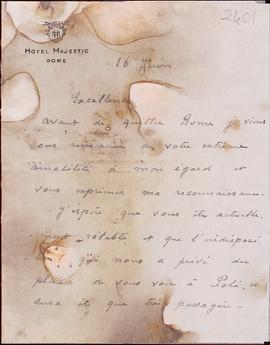 2401
HOTEL MAJESTIC
ROME
16 Juin
Excellence
Avant de quitter Rome je viens
vous remercier de votre extrême
amabilité à mon égard et
vous exprimer ma reconnaissance.
J'espère que vous êtes actuelle-
ment rétabli et que l'indisposi
qui nous a privé du
plaisir de vous voir à Poli, n'
aura été que très passagère.